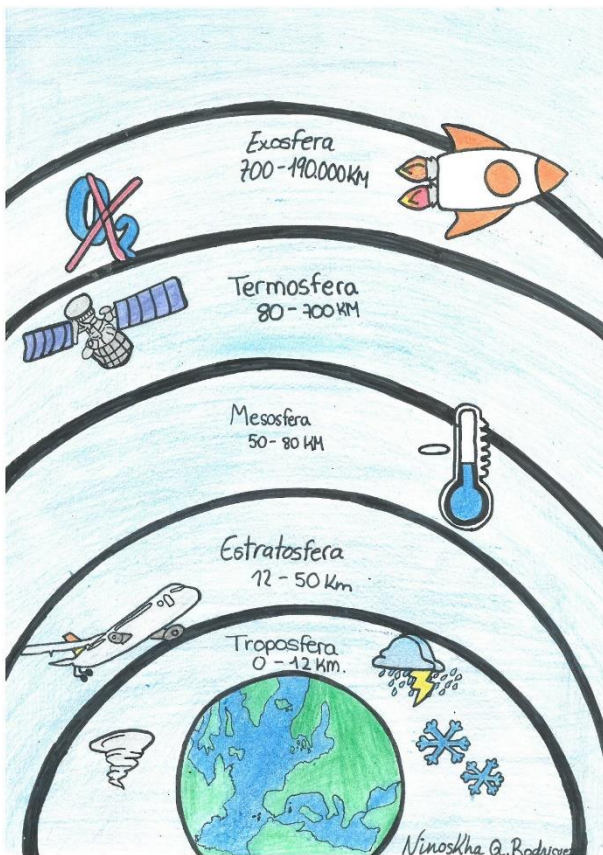 Exosfera
700-190.000KM
O2
Termosfera
80-700KM
Mesosfera
50-80 KM
Estratosfera
12-50 Km
Troposfera
0-12 Km.
Ninoskha Q. Rodriguez